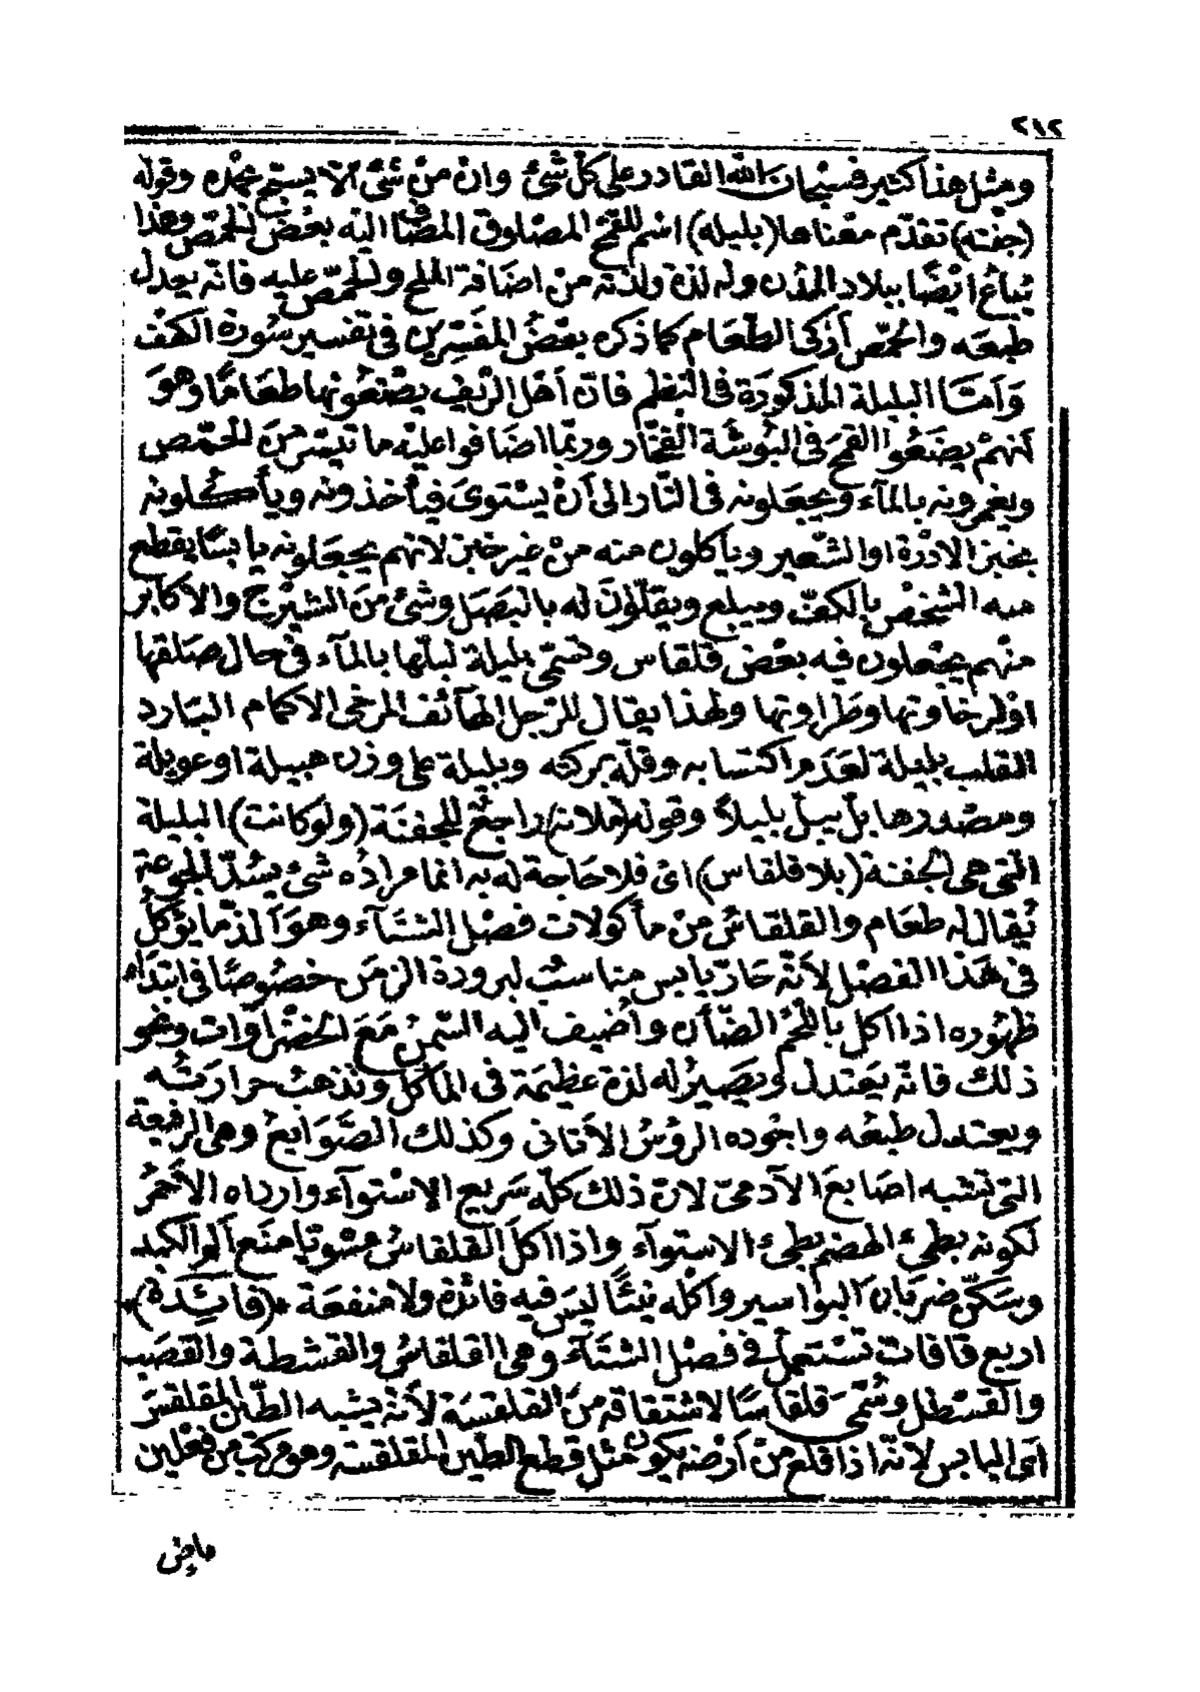 ٢١٢
ومثل هذا كثير فسبحان الله القادر على كل شئ وان من شئ الا يسبح بحمده وقوله
(جفنه) تقدّم معناها (بليله) اسم للقمح المصلوق المضاف اليه بعض الحمص وهذا
يباع ايضًا ببلاد المدن وله لذة ولذته من اضافة الملح والحمص عليه فانه يعدل
طبعه والحمص أزكى الطعام كما ذكره بعض المفسرين فى تفسير سورة الكهف
وَأمّا البليلة المذكورة فى النظم فان أهل الريف يصنعونها طعامًا وهو
أنهم يضعوا القمح فى البوشة الفخّار وربما اضافوا عليه ما تيسّر من الحمص
ويغمرونه بالمآء ويجعلونه فى النار الى أن يستوى فيأخذونه ويأكلونه
بخبز الادرة او الشعير ويأكلون منه من غير خبز لانهم يجعلونه يابسًا يقطع
منه الشخص بالكفّ ويبلع ويقلّون له بالبصل وشئ من الشيرج والاكابر
منهم يجعلون فيه بعض قلقاس وتسمّى بليلة لبلّها بالمآء فى حال صلقها
اولرخاوتها وطراوتها ولهذا يقال للرجل الهآئف المرخى الاكمام البارد
القلب بليلة لعدم اكتسابه وقلّة بركته وبليلة على وزن هبيلة او عويلة
ومصدرها بلّ يبلّ بليلاً وقوله (ملانه) راجع للجفنة (ولو كانت) البليلة
التى هى الجفنة (بلا قلقاس) اى فلا حاجة له به انما مراده شئ يسدّ الجوعة
يُقال له طعام والقلقاس من مأكولات فصل الشتآء وهو ألذّ ما يؤكل
فى هذا الفصل لأنّه حارّ يابس مناسب لبرودة الزمن خصوصًا فى ابتدآء
ظهوره اذا اكل باللحم الضأن وأضيف اليه السمن مع الخضراوات ونحو
ذلك فانّه يعتدل ويصير له لذة عظيمة فى المأكل وتذهب حرارته
ويعتدل طبعه واجوده الرؤس الأتانى وكذلك الصّوابع وهى الرفيعة
التى تشبه اصابع الآدمىّ لانّ ذلك كلّه سريع الاستوآء وارداه الأحمر
لكونه بطئ الهضم بطئ الاستوآء واذا اكل القلقاس مشويا منع ألم الكبد
وسكّن ضربان البواسير وأكله نيئًا ليس فيه فائدة ولا منفعة *(فائدة)*
اربع قافات تستعمل فى فصل الشتآء وهى القلقاس والقشطة والقصب
والقسطل وسُمّى قلقاسًا لاشتقاقه من القلقسة لأنه يشبه الطين المقلقس
أى اليابس لانّه اذا قلع من أرضه يكون مثل قطع الطين المقلقسة وهو مركب من فعلين
ماض